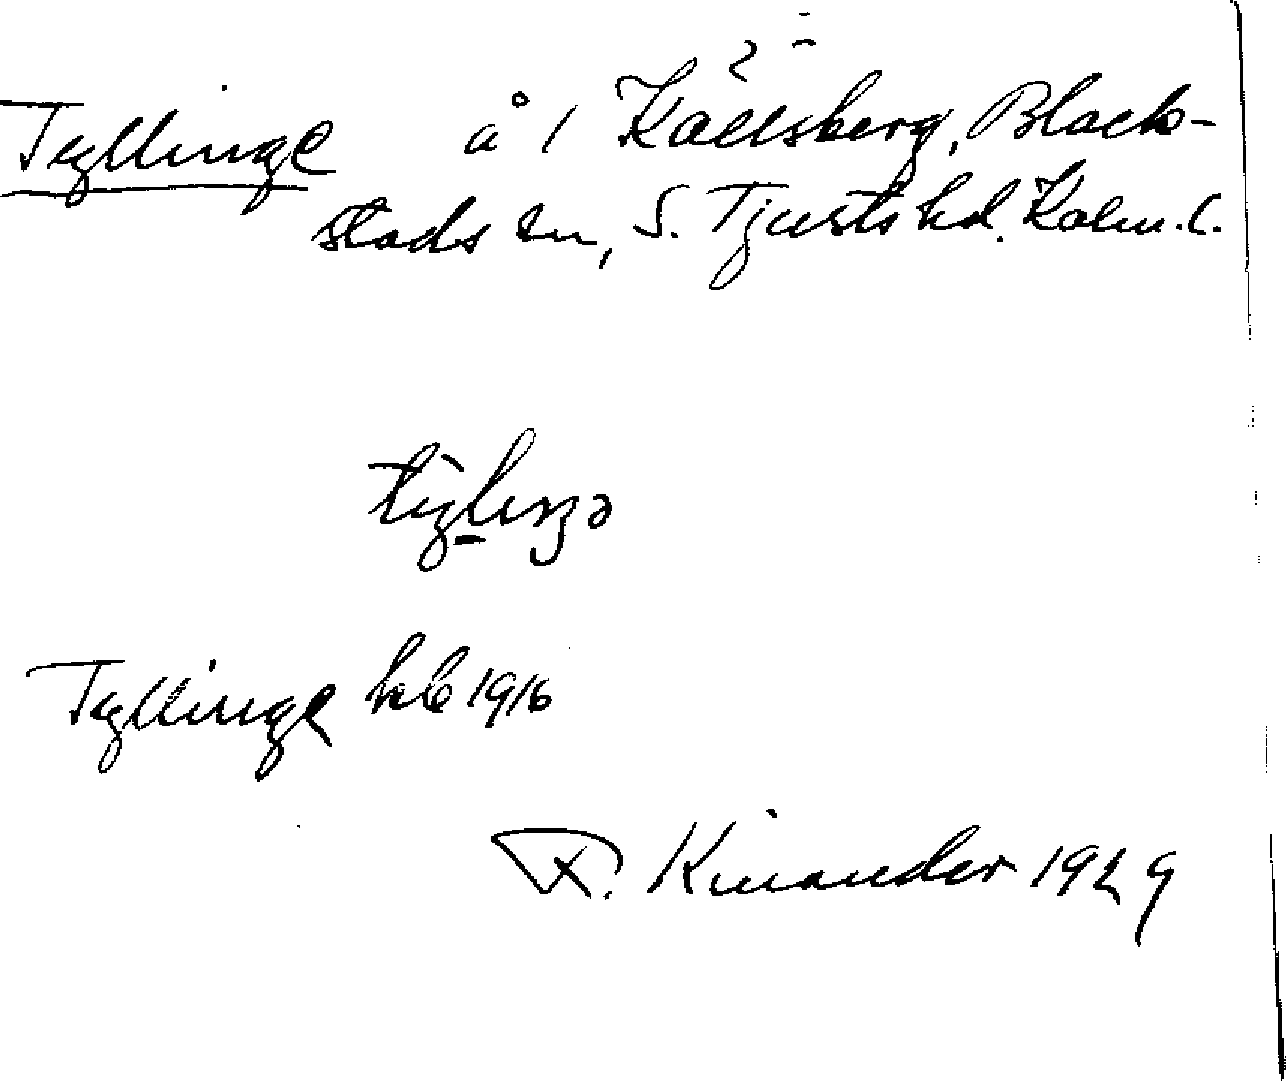 Tyllinge å 1 Källsberg, Black-
stads sn, S. Tjusts hd. Kalm. l.
Tyllinge hbl 1916
R. Kinander 1929